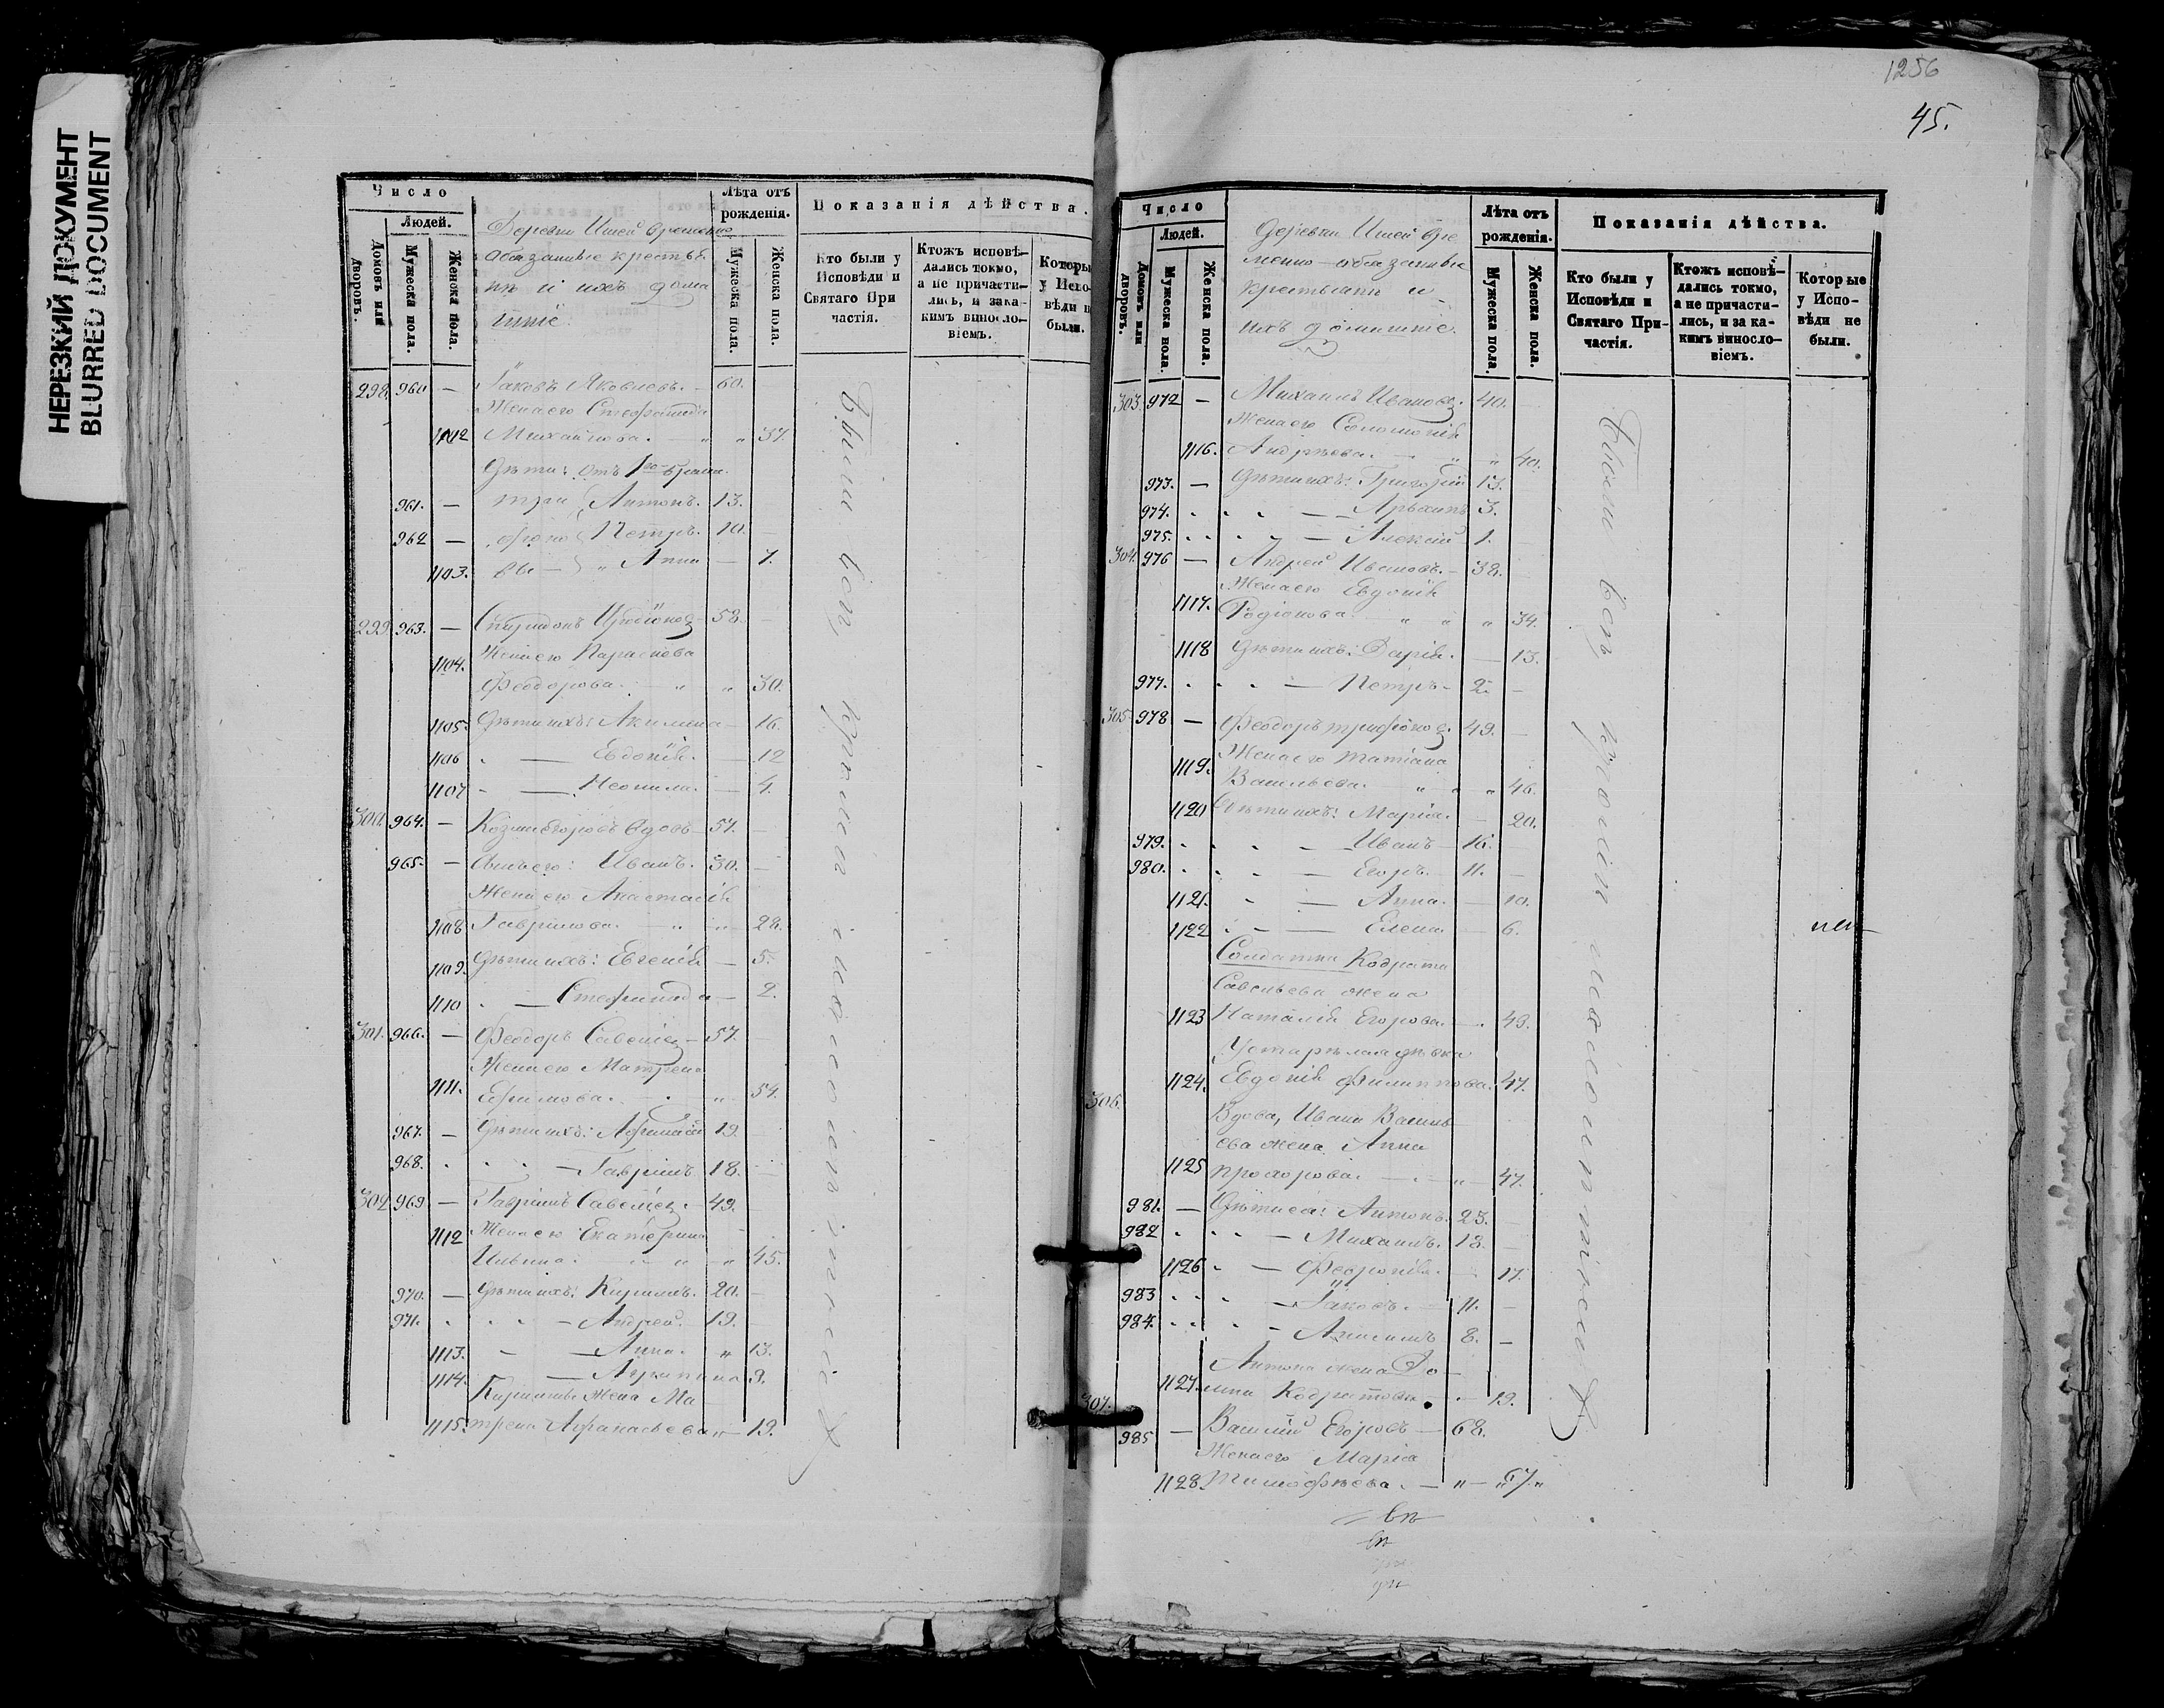 НЕРЕЗКИЙ ДОКУМЕНТ
BLURRED DOCUMENT
Число
Людей.
Домовъ или дворовъ.
Мужеска пола.
Женска пола.
Деревни временно
обязанные крестья
не и ихъ дома
шніе.
Лѣта отъ рожденія.
Мужеска пола.
Женска пола.
Показанія дѣйства.
Кто были у Исповѣди и Святаго При частія.
Ктожъ исповѣ- дались токмо, а не причасти- лись, и за ка- кимъ винословіемъ.
298. 960 — Іаковъ Яковлевъ. — 60.
Жена его Стефанида
1102 Михайлова. — „ „ 37.
Дѣти: отъ 1го брака
961. — Антонъ. 13.
962 — Петръ. 10. —
1103. Анна — 7.
299. 963. — Спиридонъ 58. —
1104. Жена его Параскева
Феодорова. — „ „ 30.
1105. Дѣти ихъ: Акилина — 16.
1106 — Евдокія. — 12
1107 — Неонила. — 4.
300. 964. — Козма Егоровъ вдовъ — 57. —
965. — Сынъ его: Иванъ. 30. —
Жена его Анастасія
1108 Гаврилова. — „ „ 28.
1109. Дѣти ихъ: Евгенія — 5.
1110 — Стефанида — 2.
301. 966. — Феодоръ Савельев — 57. —
Жена его Матрена
1111. Ефимова. — „ 54.
967. — Дѣти ихъ: 19. —
968. — Гавріилъ 18. —
302 969 — Гавріилъ Савельев. 49. —
1112 Жена его Екатерина
Ильина. „ „ 45.
970. — Дѣти ихъ: Кириллъ. 20. —
971. — Андрей. 19. —
1113. — Анна. „ 13.
1114. — 9.
Кириллова жена Ма
1115. трена Афанасьева „ — 19.
Были вси
1256
45.
Число
Людей.
Домовъ или дворовъ.
Мужеска пола.
Женска пола.
Деревни вре
менно-обязанные
крестьяне и
ихъ домашніе.
Лѣта отъ рожденія.
Мужеска пола.
Женска пола.
Показанія дѣйства.
Кто были у Исповѣди и Святаго При- частія.
Ктожъ исповѣ- дались токмо, а не причасти- лись, и за ка- кимъ винословіемъ.
Которые у Испо- вѣди не были.
303. 972 — Михаилъ Иванов. 40. —
Жена его Соломонія
1116. Андреева. — „ „ 40.
973. — Дѣти ихъ: Григорій 13.
974. — Архипъ 3.
975. — Алексій 1. —
304. 976 — Андрей Ивановъ. — 38. —
Жена его Евдокія
1117. Родіонова. „ „ „ 34.
1118 Дѣти ихъ: Дарія. — 13.
977. — Петръ — 2. —
305. 978 — Феодоръ Трифонов. 49. —
Жена его Татіана
1119. Васильева. „ „ „ 46.
1120 Дѣти ихъ: Марія. — 20.
979. — Иванъ — 16. —
980. — Егоръ. 11. —
1121. — Анна. — 10.
1122 — Елена — 6.
Солдатка Кодрата
Савельева жена
1123 Наталія Егорова. — 49.
Устарѣлая дѣвка
1124. Евдокія Филиппова. 47.
306. Вдова, Ивана Василь
ева жена Анна
1125 Прохорова. — „ — 47.
981. — Дѣти ея: Антонъ. 23. —
982 — Михаилъ. 18. —
1126 — Февронія. — 17.
983 — Іаковъ. — 11. —
984. — 8. —
Антона жена До
1127. мна Кодратова — 19.
307. 985 — Василій Егоровъ — 68.
Жена его Марія
1128. Тимофѣева. — „ — „ 67. „
Были вси